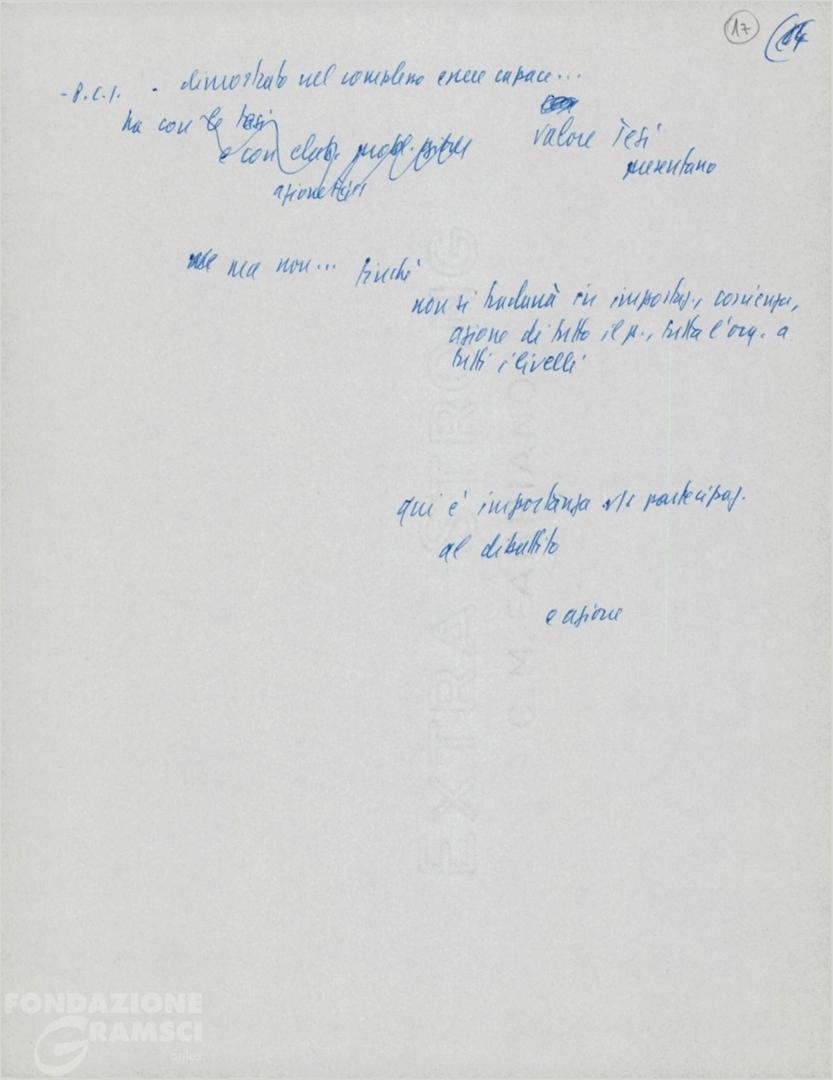 17
- P.C.I. . dimostrato nel complesso essere capace...
ha con le tesi
e con elab. probl.
valore Tesi
presentano
azione
ma non... finché
non si tradurrà in impostaz., coscienza,
azione di tutto il p., tutta l'org. a
tutti i livelli
qui è importanza partecipaz.
al dibattito
e azione
EXTRA STRONG
C. M. FABRIANO
FONDAZIONE
GRAMSCI
onlus